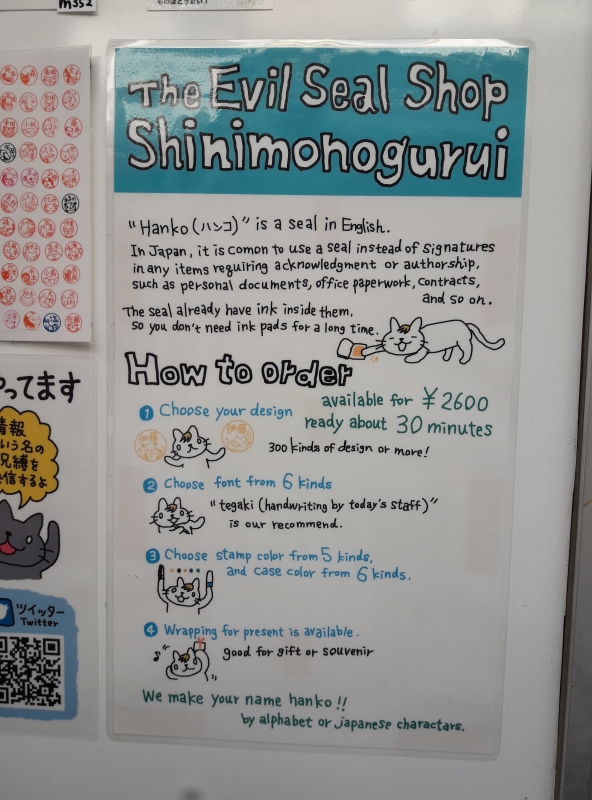 The Evil Seal Shop
Shinimonogurui
"Hanko (ハンコ)" is a seal in English.
In Japan, it is comon to use a seal instead of signatures
in any items requiring acknowledgment or authorship,
such as personal documents, office paperwork, contracts,
and so on.
The seal already have ink inside them,
so you don't need ink pads for a long time.
How to order
available for ¥2600
ready about 30 minutes
1 Choose your design
伊藤
伊藤
300 kinds of design or more!
2 Choose font from 6 kinds
"tegaki (handwriting by today's staff)"
is our recommend.
3 Choose stamp color from 5 kinds,
and case color from 6 kinds.
4 Wrapping for present is available.
good for gift or souvenir
We make your name hanko!!
by alphabet or japanese charactars.
ってます
情報
いう名の
兄縛を
信するよ
ツイッター
Twitter